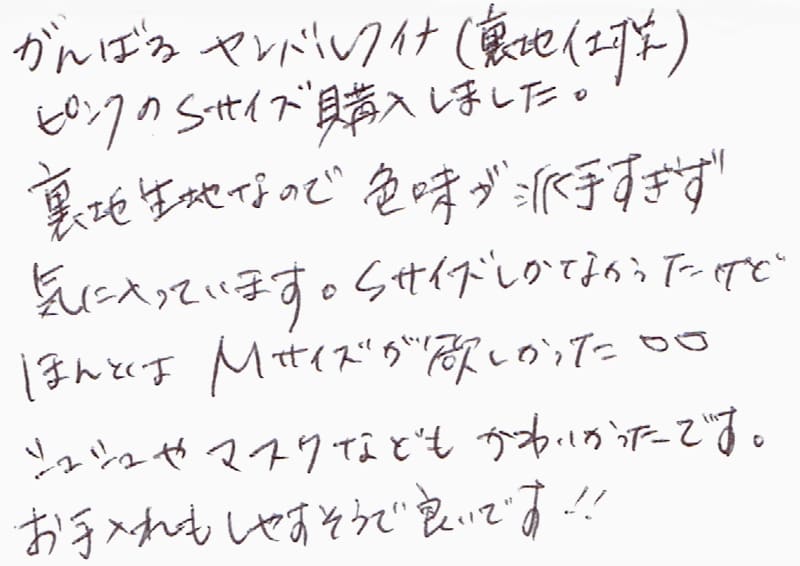 がんばるヤンバルクイナ(裏地仕様)
ピンクのSサイズ購入しました。
裏地生地なので色味が派手すぎず
気に入っています。Sサイズしかなかったけど
ほんとは Mサイズが欲しかった
シュシュやマスクなどもかわいかったです。
お手入れもしやすそうで良いです!!